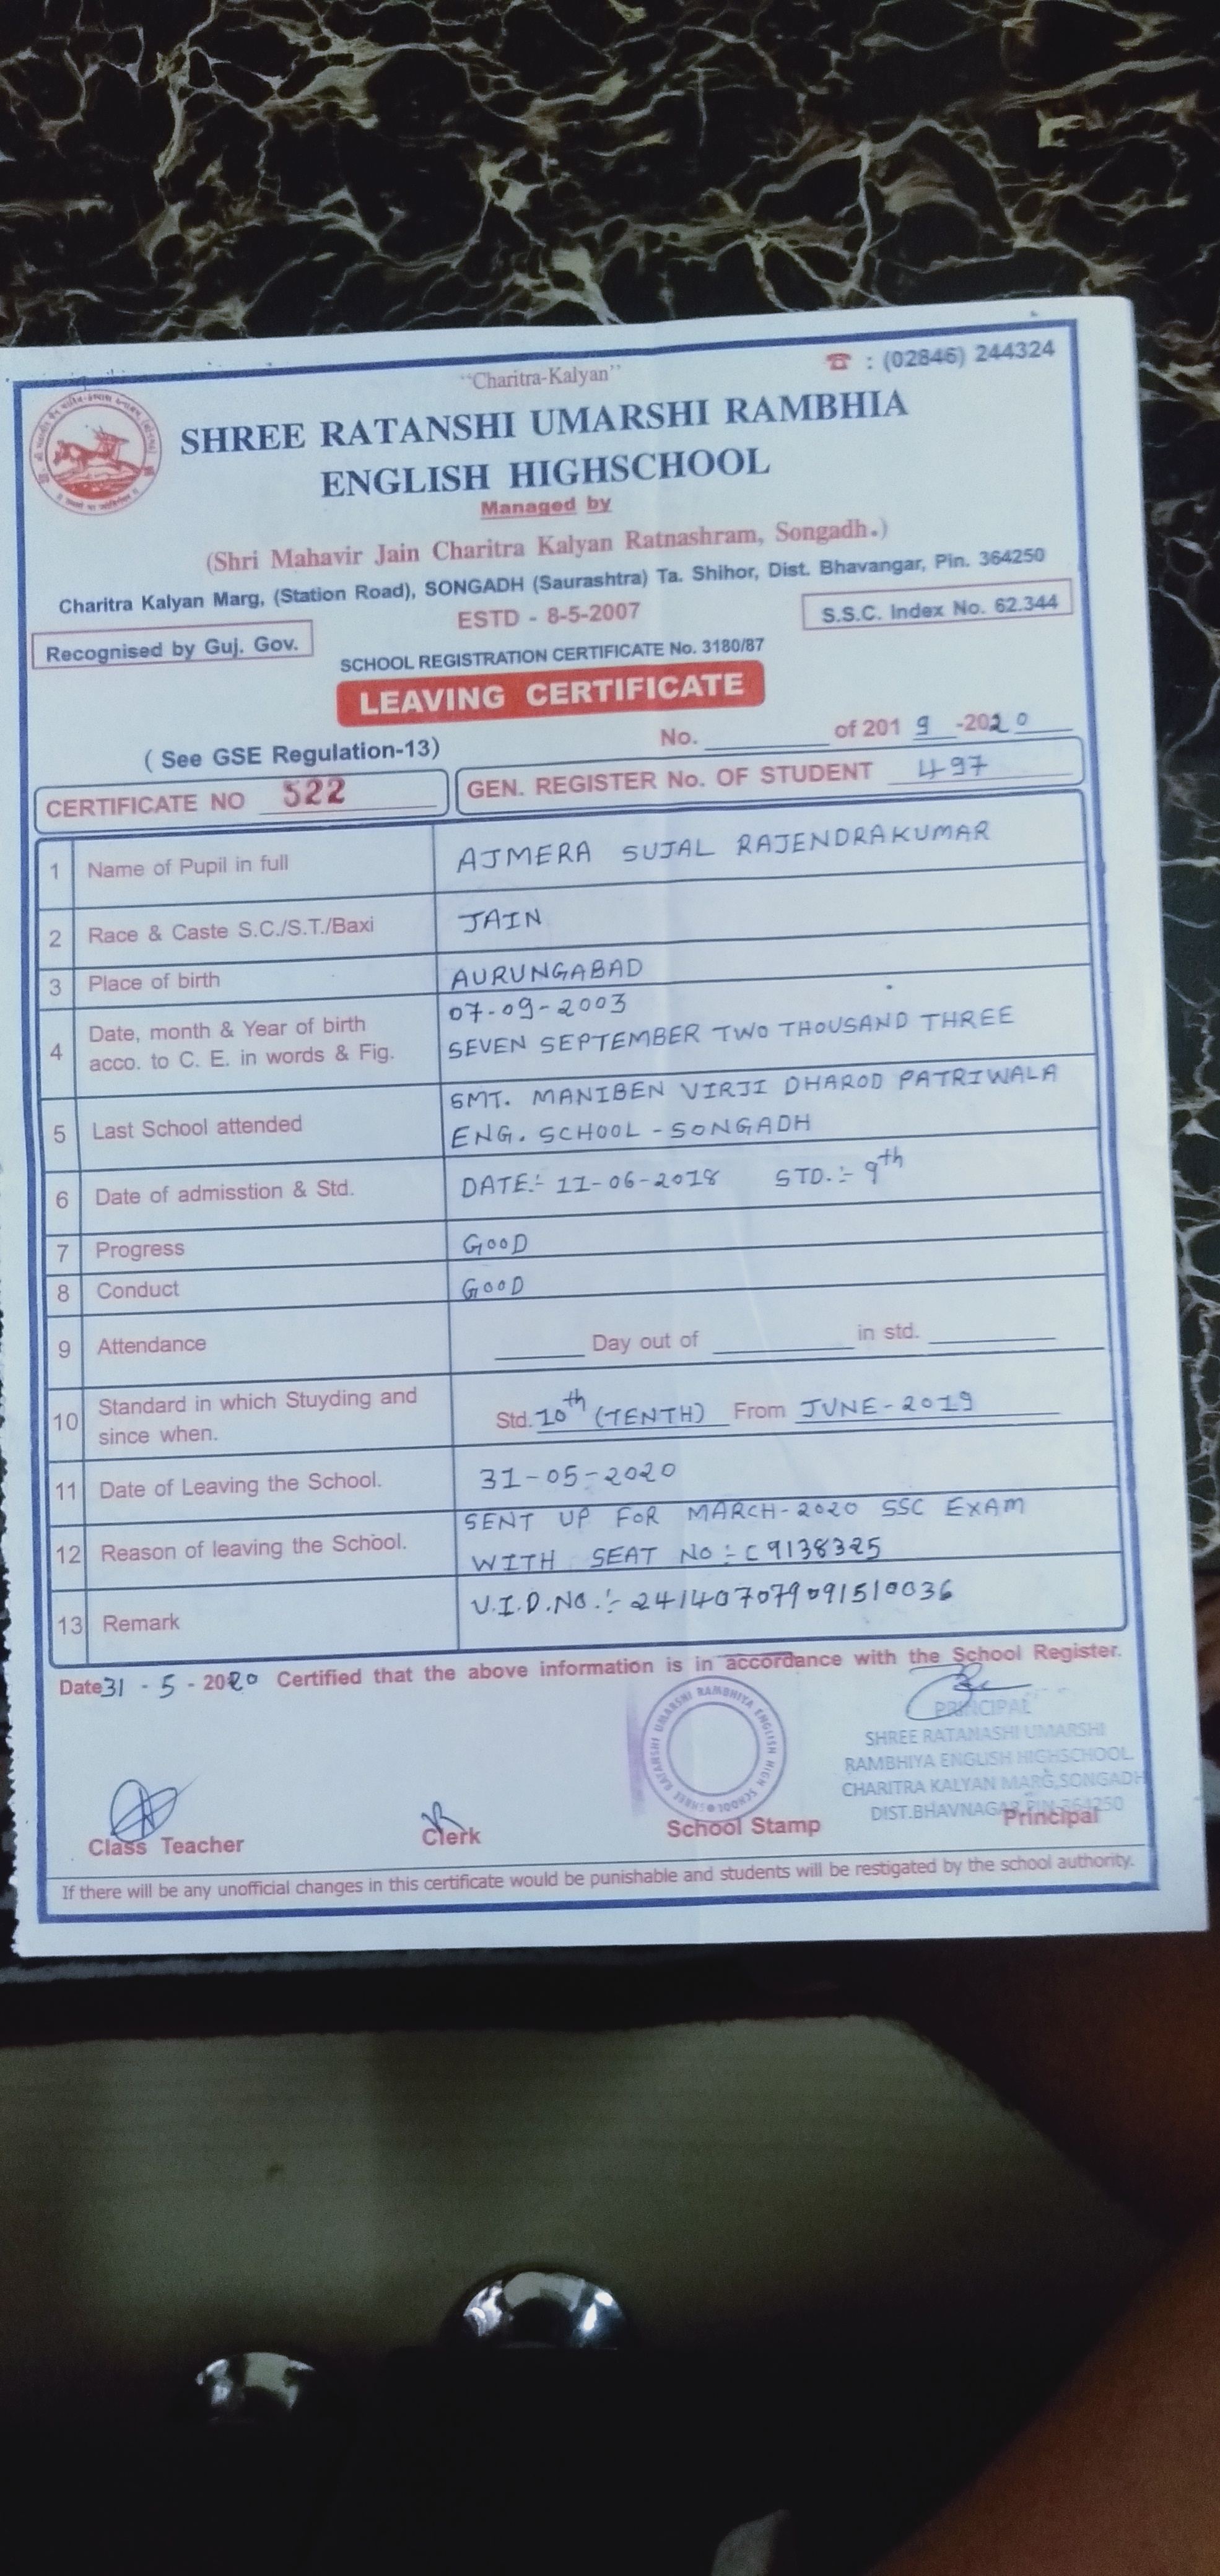 "Charitra-Kalyan"
☎ : (02846) 244324
SHREE RATANSHI UMARSHI RAMBHIA
ENGLISH HIGHSCHOOL
Managed by
(Shri Mahavir Jain Charitra Kalyan Ratnashram, Songadh.)
Charitra Kalyan Marg, (Station Road), SONGADH (Saurashtra) Ta. Shihor, Dist. Bhavangar, Pin. 364250
ESTD - 8-5-2007
S.S.C. Index No. 62.344
Recognised by Guj. Gov.
SCHOOL REGISTRATION CERTIFICATE No. 3180/87
LEAVING CERTIFICATE
(See GSE Regulation-13)
No. ________ of 2019 -2020
CERTIFICATE NO 522
GEN. REGISTER No. OF STUDENT 497
1 Name of Pupil in full AJMERA SUJAL RAJENDRAKUMAR
2 Race & Caste S.C./S.T./Baxi JAIN
3 Place of birth AURUNGABAD
4 Date, month & Year of birth 07-09-2003
acco. to C. E. in words & Fig. SEVEN SEPTEMBER TWO THOUSAND THREE
5 Last School attended SMT. MANIBEN VIRJI DHAROD PATRIWALA
ENG. SCHOOL - SONGADH
6 Date of admisstion & Std. DATE:- 11-06-2018 STD.:- 9th
7 Progress GOOD
8 Conduct GOOD
9 Attendance ______ Day out of ________ in std. ________
10 Standard in which Stuyding and
since when. Std. 10th (TENTH) From JUNE-2019
11 Date of Leaving the School. 31-05-2020
12 Reason of leaving the School. SENT UP FOR MARCH-2020 SSC EXAM
WITH SEAT NO:- C9138325
13 Remark U.I.D.NO.:- 241407079091510036
Date 31 - 5 - 2020 Certified that the above information is in accordance with the School Register.
SHREE RATANSHI UMARSHI RAMBHIYA ENGLISH HIGH SCHOOL
PRINCIPAL
SHREE RATANASHI UMARSHI
RAMBHIYA ENGLISH HIGHSCHOOL
CHARITRA KALYAN MARG,SONGADH
DIST.BHAVNAGAR PIN-364250
Class Teacher
Clerk
School Stamp
Principal
If there will be any unofficial changes in this certificate would be punishable and students will be restigated by the school authority.